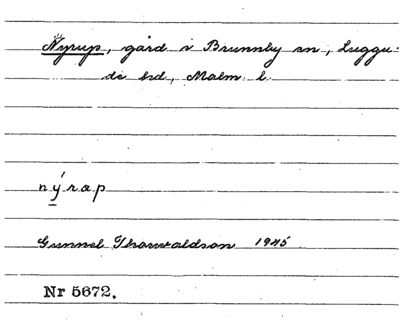 Nyrup, gård i Brunnby sn, Luggu-
de hd, Malm. l.
ný̱rap
Gunnel Thorwaldson 1945
Nr 5672.